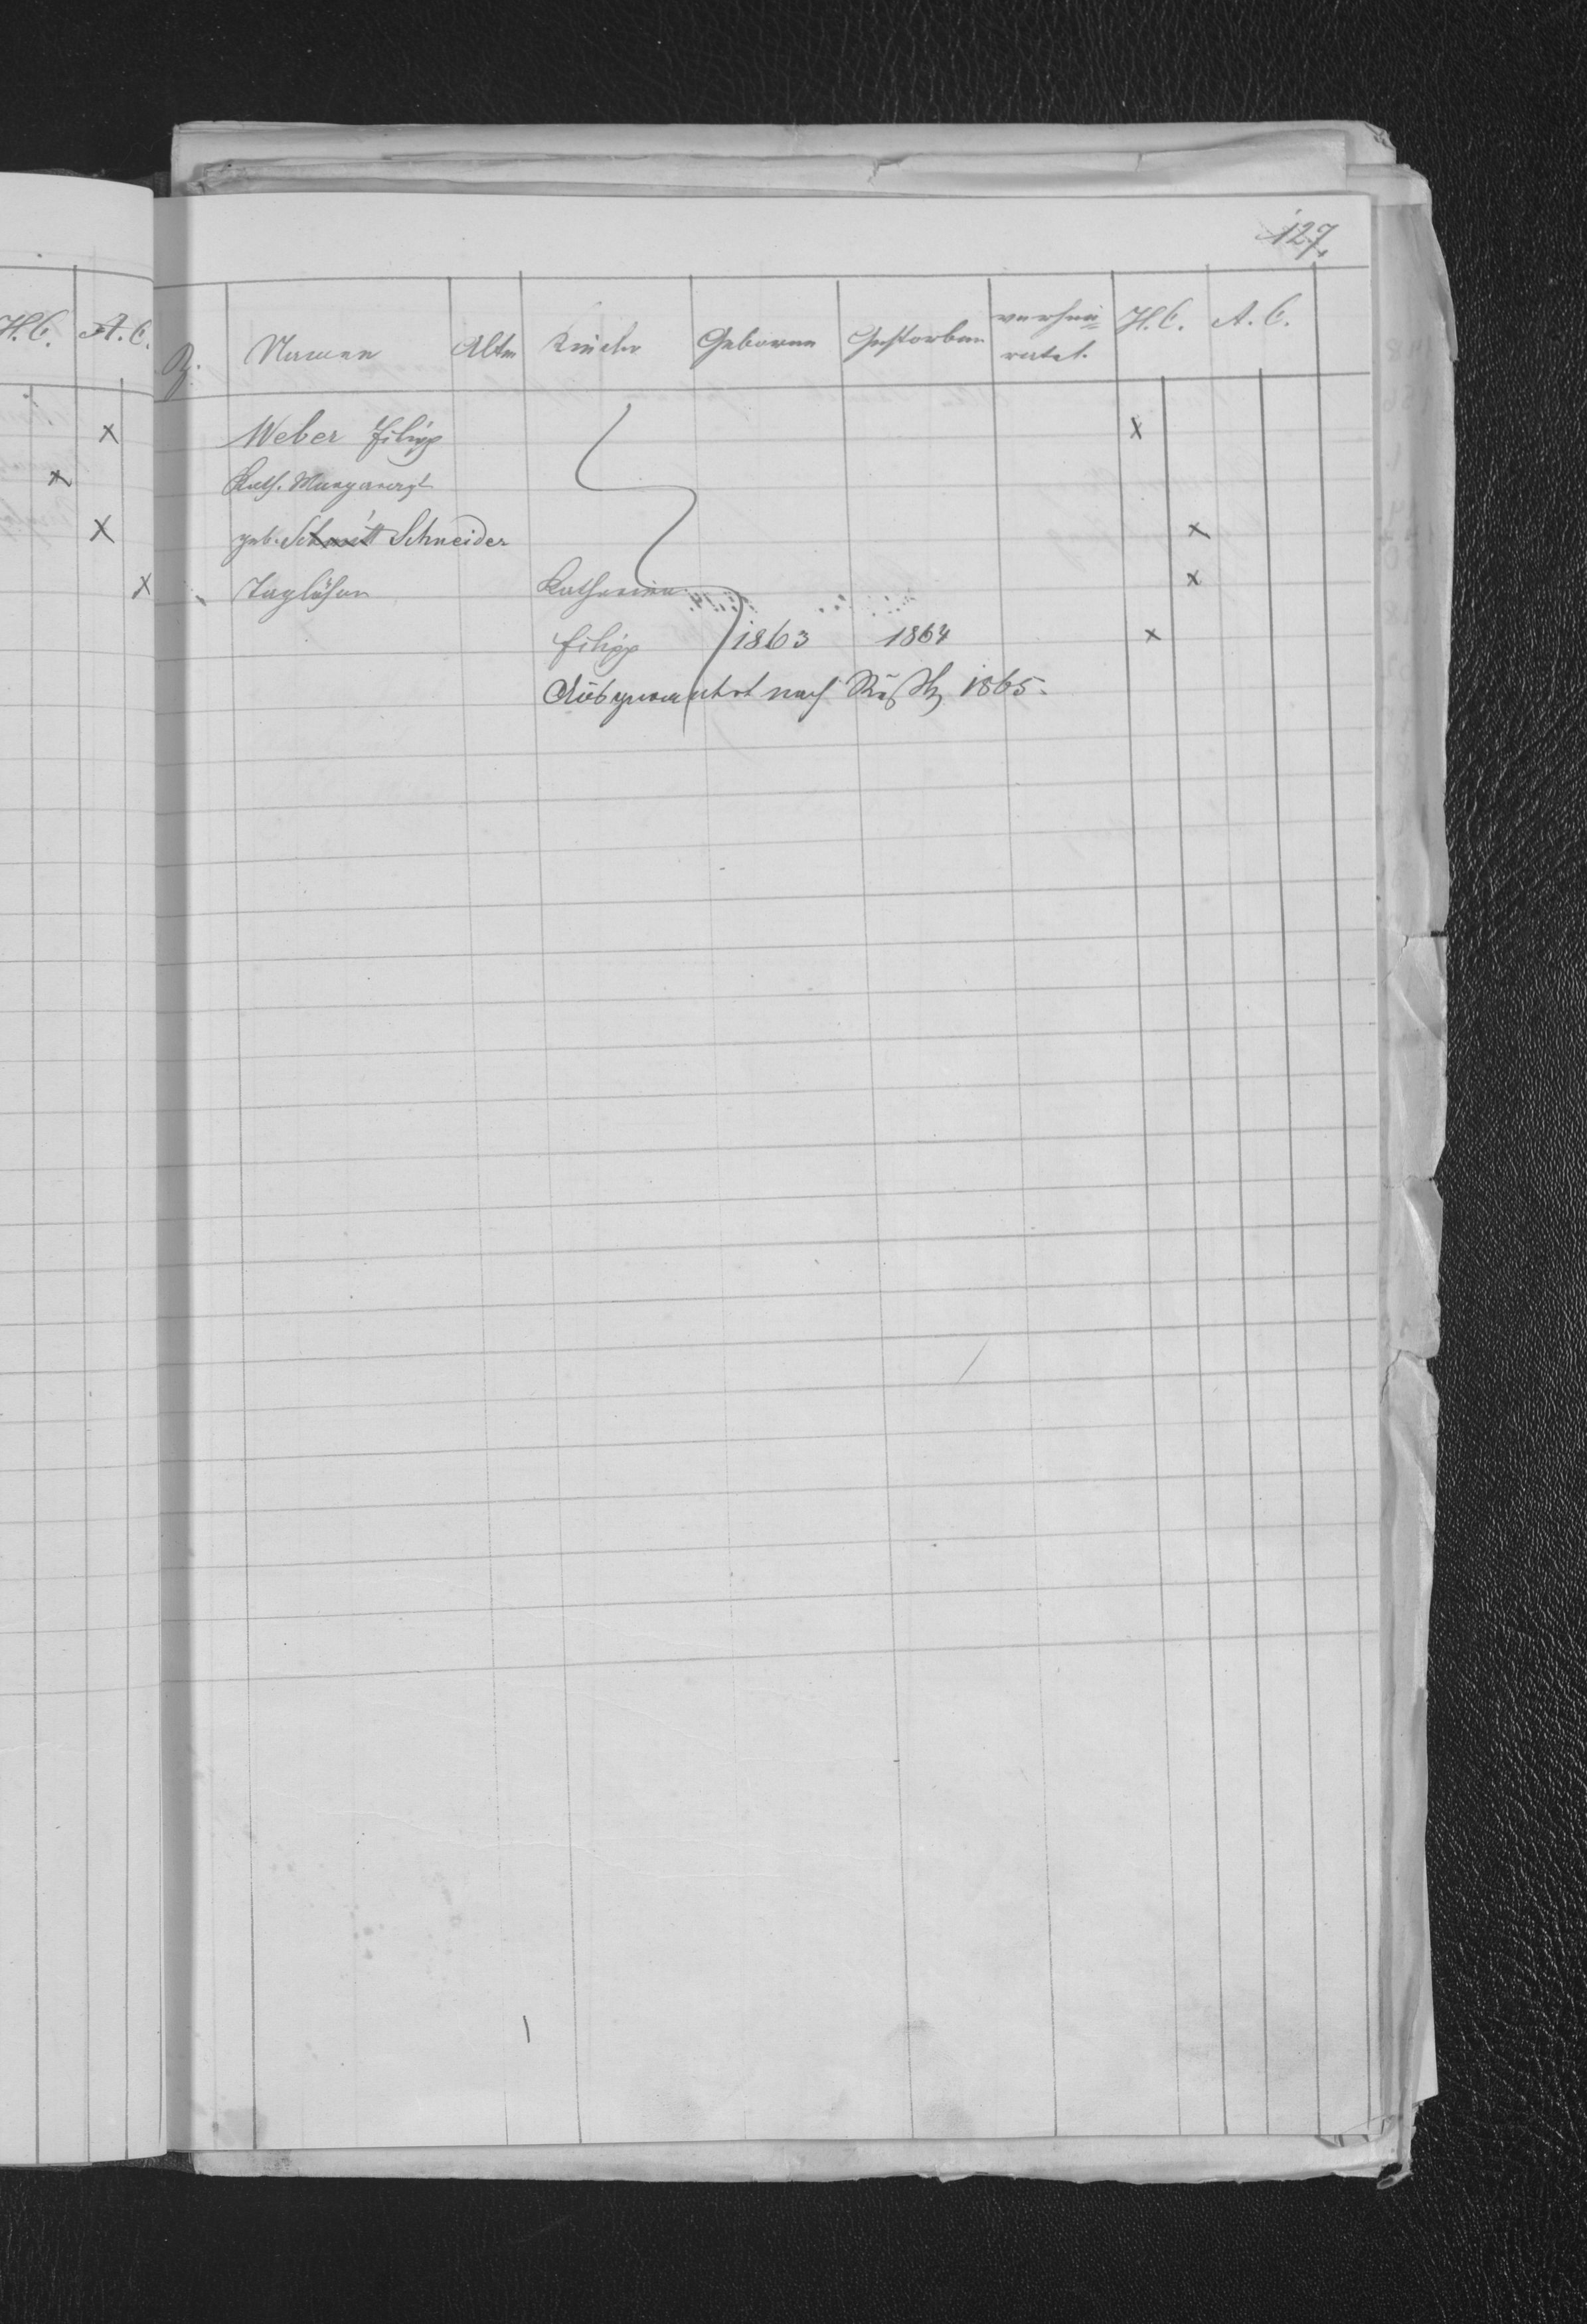 127.
H.C. A.C.
Z. Namen Alter Kinder Geboren Gestorben verhei=
ratet. H.C. A.C.
x Weber Filipp x
x Kath. Margareth
x geb. Schmitt Schneider x
x Taglöhner Katharina x
Filipp 1863 1864 x
Ausgewandert nach 1865.